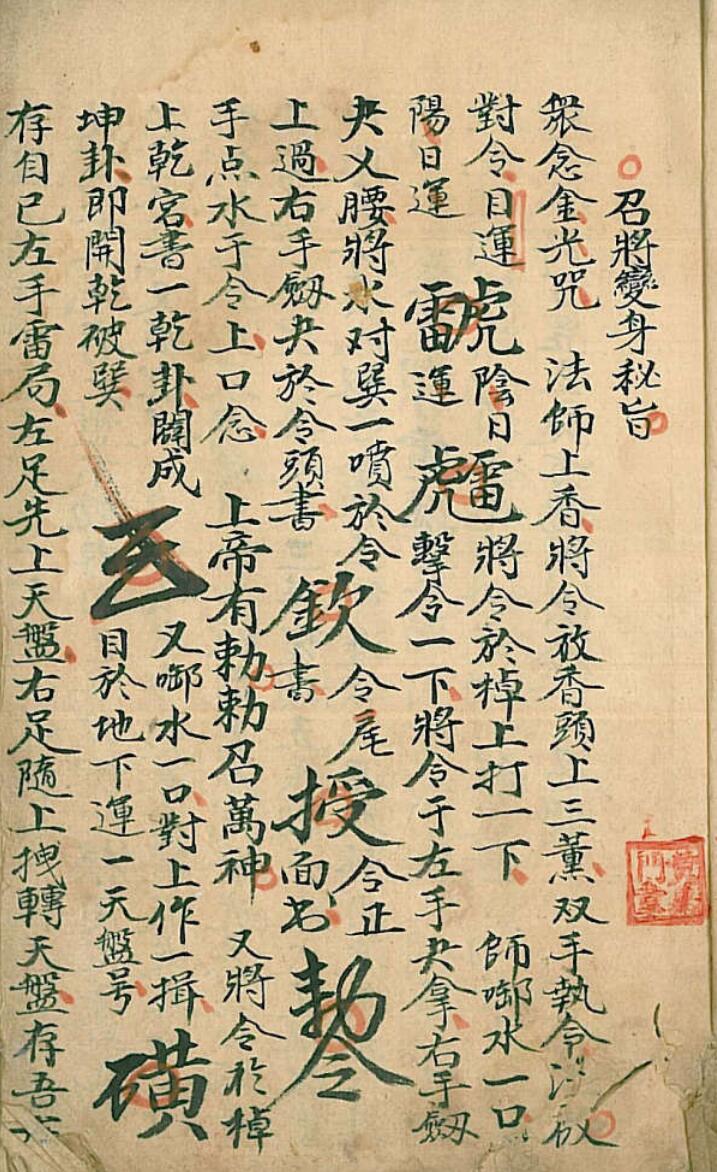 召將變身秘旨
衆念金光咒　法師上香將令放香頭上三薰双手執令
對令目運 虎 陰日 雷 將令於棹上打一下　師啣水一口
陽日運 雷 運 虎 擊令一下將令于左手夬拿右手劔
夬乂腰將水对巽一噴於令 欽 令尾 授 令正
上過右手劔夬於令頭書 書 面书 勅令
手点水于令上口念　上帝有勅勅召萬神　又將令於棹
上乾宮書一乾卦闢成 又啣水一口對上作一揖
坤卦即開乾破巽 目於地下運一天盤号 磺
存自已左手雷局左足先上天盤右足隨上拽轉天盤存吾